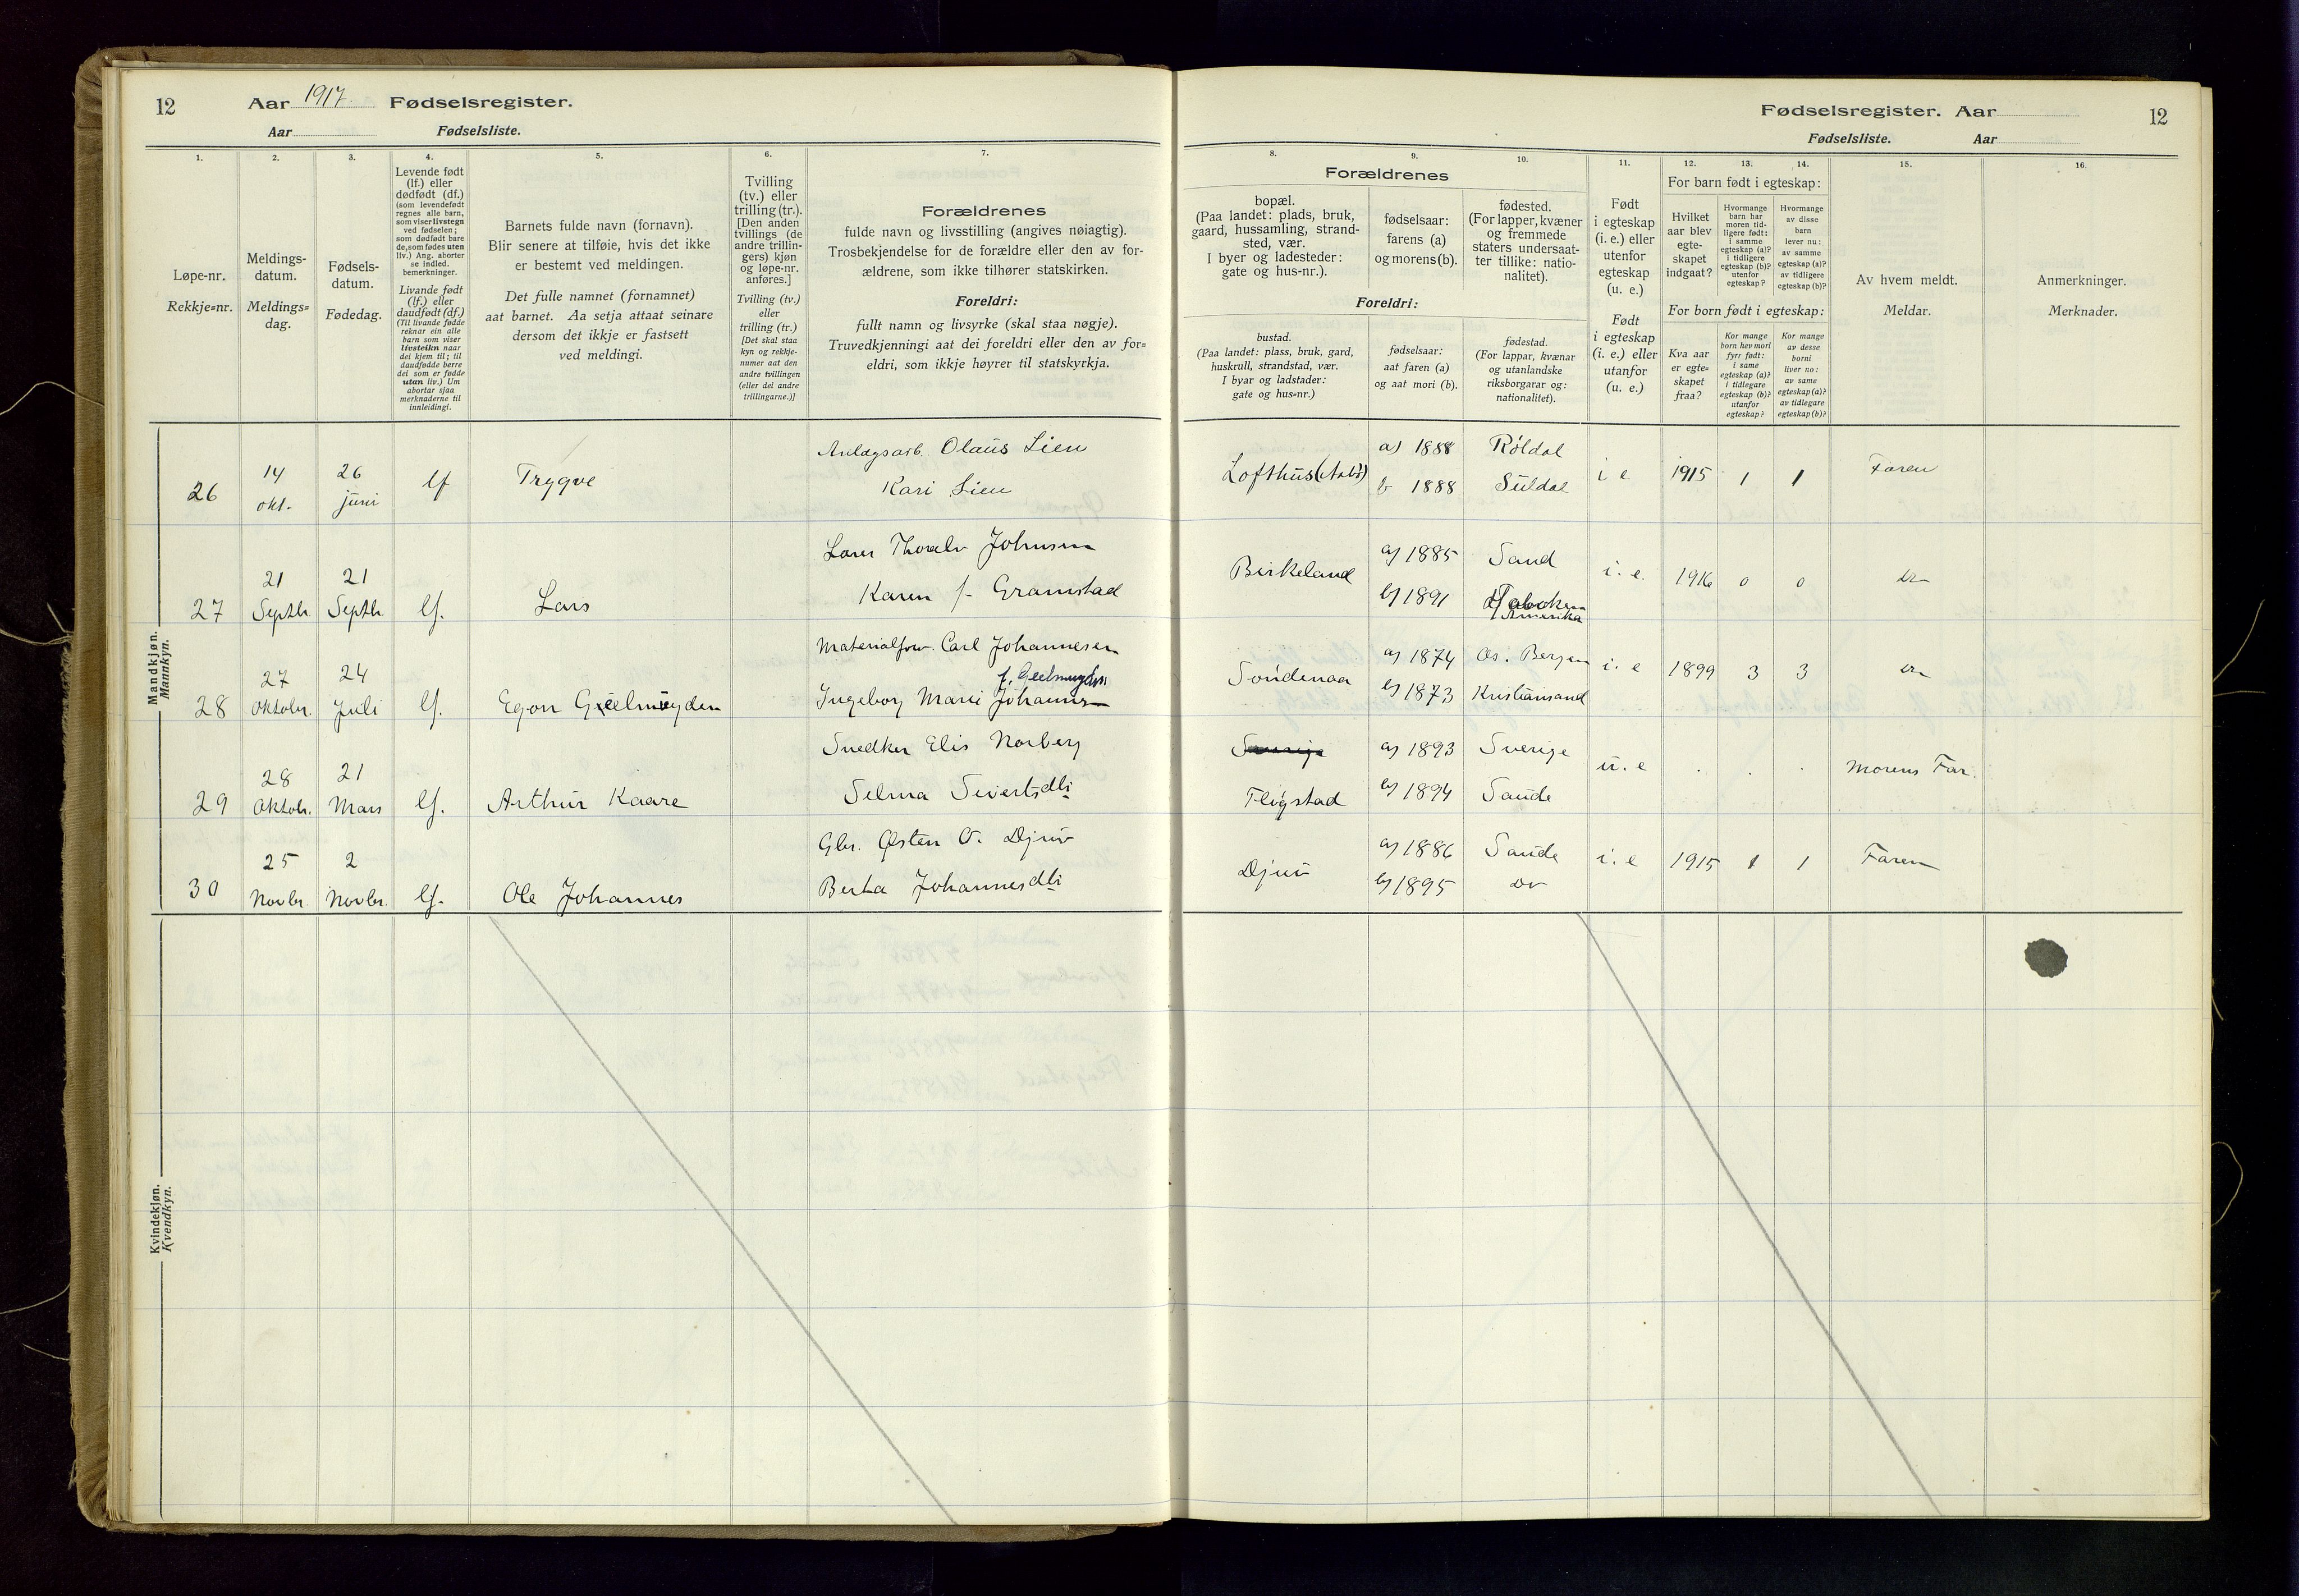 12
Aar 1917. Fødselsregister.
Aar Fødselsliste.
1.
Løpe-nr.
Rekkje=nr.
2.
Meldings-
datum.
Meldings=
dag.
3.
Fødsels-
datum.
Fødedag.
4.
Levende født
(lf.) eller
dødfødt (df.)
(som levendefødt
regnes alle barn,
som viser livstegn
ved fødselen;
som dødfødt bare
de, som fødes uten
liv.) Ang. aborter
se indled.
bemerkninger.
Livande født
(lf.) eller
daudfødt (df.)
(Til livande fødde
reknar ein alle
barn som viser
livsteikn naar
dei kjem til; til
daudfødde berre
dei som er fødde
utan liv.) Um
abortar sjaa
merknaderne til
innleidingi.
5.
Barnets fulde navn (fornavn).
Blir senere at tilføie, hvis det ikke
er bestemt ved meldingen.
Det fulle namnet (fornamnet)
aat barnet. Aa setja attaat seinare
dersom det ikkje er fastsett
ved meldingi.
6.
Tvilling
(tv.) eller
trilling (tr.).
[Den anden
tvillings (de
andre trillin-
gers) kjøn
og løpe-nr.
anføres.]
Tvilling (tv.)
eller
trilling (tr.)
[Det skal staa
kyn og rekkje-
numer aat den
andre tvillingen
(eller dei andre
trillingarne.)]
7.
Forældrenes
fulde navn og livsstilling (angives nøiagtig).
Trosbekjendelse for de forældre eller den av for-
ældrene, som ikke tilhører statskirken.
Foreldri:
fullt namn og livsyrke (skal staa nøgje).
Truvedkjenningi aat dei foreldri eller den av for=
eldri, som ikkje høyrer til statskyrkja.
Mandkjøn.
Mannkyn.
26
14
okt.
26
juni
lf
Trygve
Anlægsarb. Olaus Lien
Kari Lien
27
21
Septb.
21
Septb.
lf.
Lars
Thoralv Johnsen
Karen f. Gramstad
28
27
Oktobr.
24
Juli
lf.
Egon Geelmuyden
Materialforv. Carl Johannesen
f. Geelmuyden
Ingeborg Marie Johannesen
29
28
Oktobr.
21
Mars
lf.
Arthur Kaare
Snedker Elis Norberg
Selma Sivertsdtr
30
25
Novbr.
2
Novbr.
lf.
Ole Johannes
Gbr. Østen O. Djuv
Berta Johannesdtr
Kvindekjøn.
Kvendkyn.
Fødselsregister. Aar 12
Fødselsliste. Aar
Forældrenes
8.
bopæl.
(Paa landet: plads, bruk,
gaard, hussamling, strand-
sted, vær.
I byer og ladesteder:
gate og hus-nr.).
9.
fødselsaar:
farens (a)
og morens (b).
10.
fødested.
(For lapper, kvæner
og fremmede
staters undersaat-
ter tillike: natio-
nalitet).
Foreldri:
bustad.
(Paa landet: plass, bruk, gard,
huskrull, strandstad, vær.
I byar og ladstader:
gate og hus=nr.)
fødselsaar:
aat faren (a)
og aat mori (b).
fødestad.
(For lappar, kvænar
og utanlandske
riksborgarar og:
nationalitet).
11.
Født
i egteskap
(i. e.) eller
utenfor
egteskap
(u. e.)
Født
i egteskap
(i. e.) eller
utanfor
(u. e.)
For barn født i egteskap:
12.
Hvilket
aar blev
egte-
skapet
indgaat?
13.
Hvormange
barn har
moren tid-
ligere født:
i samme
egteskap (a)?
i tidligere
egteskap (b)?
utenfor
egteskap?
14.
Hvormange
av disse
barn
lever nu:
av samme
egteskap (a)?
av tidligere
egteskap (b)?
For born født i egteskap:
Kva aar
er egte=
skapet
fraa?
Kor mange
born hev mori
fyrr født:
i same
egteskap (a)?
i tidlegare
egteskap (b)?
utanfor
egteskap?
Kor mange
av desse
borni
liver no:
av same
egteskap (a)?
av tidlegare
egteskap (b)?
15.
Av hvem meldt.
Meldar.
16.
Anmerkninger.
Merknader.
Lofthus
a) 1888
b 1888
Røldal
Suldal
i e
1915
1
1
Faren
Birkeland
a) 1885
b) 1891
Sand
Amerika
i. e.
1916
0
0
Søndenaa
a) 1874
b) 1873
Os. Bergen
Kristiansand
i. e
1899
3
3
Fløgstad
a) 1893
b) 1894
Sverige
Saude
u. e
Morens Far.
Djuv
a) 1886
b) 1895
Saude
do
i. e
1915
1
1
Faren